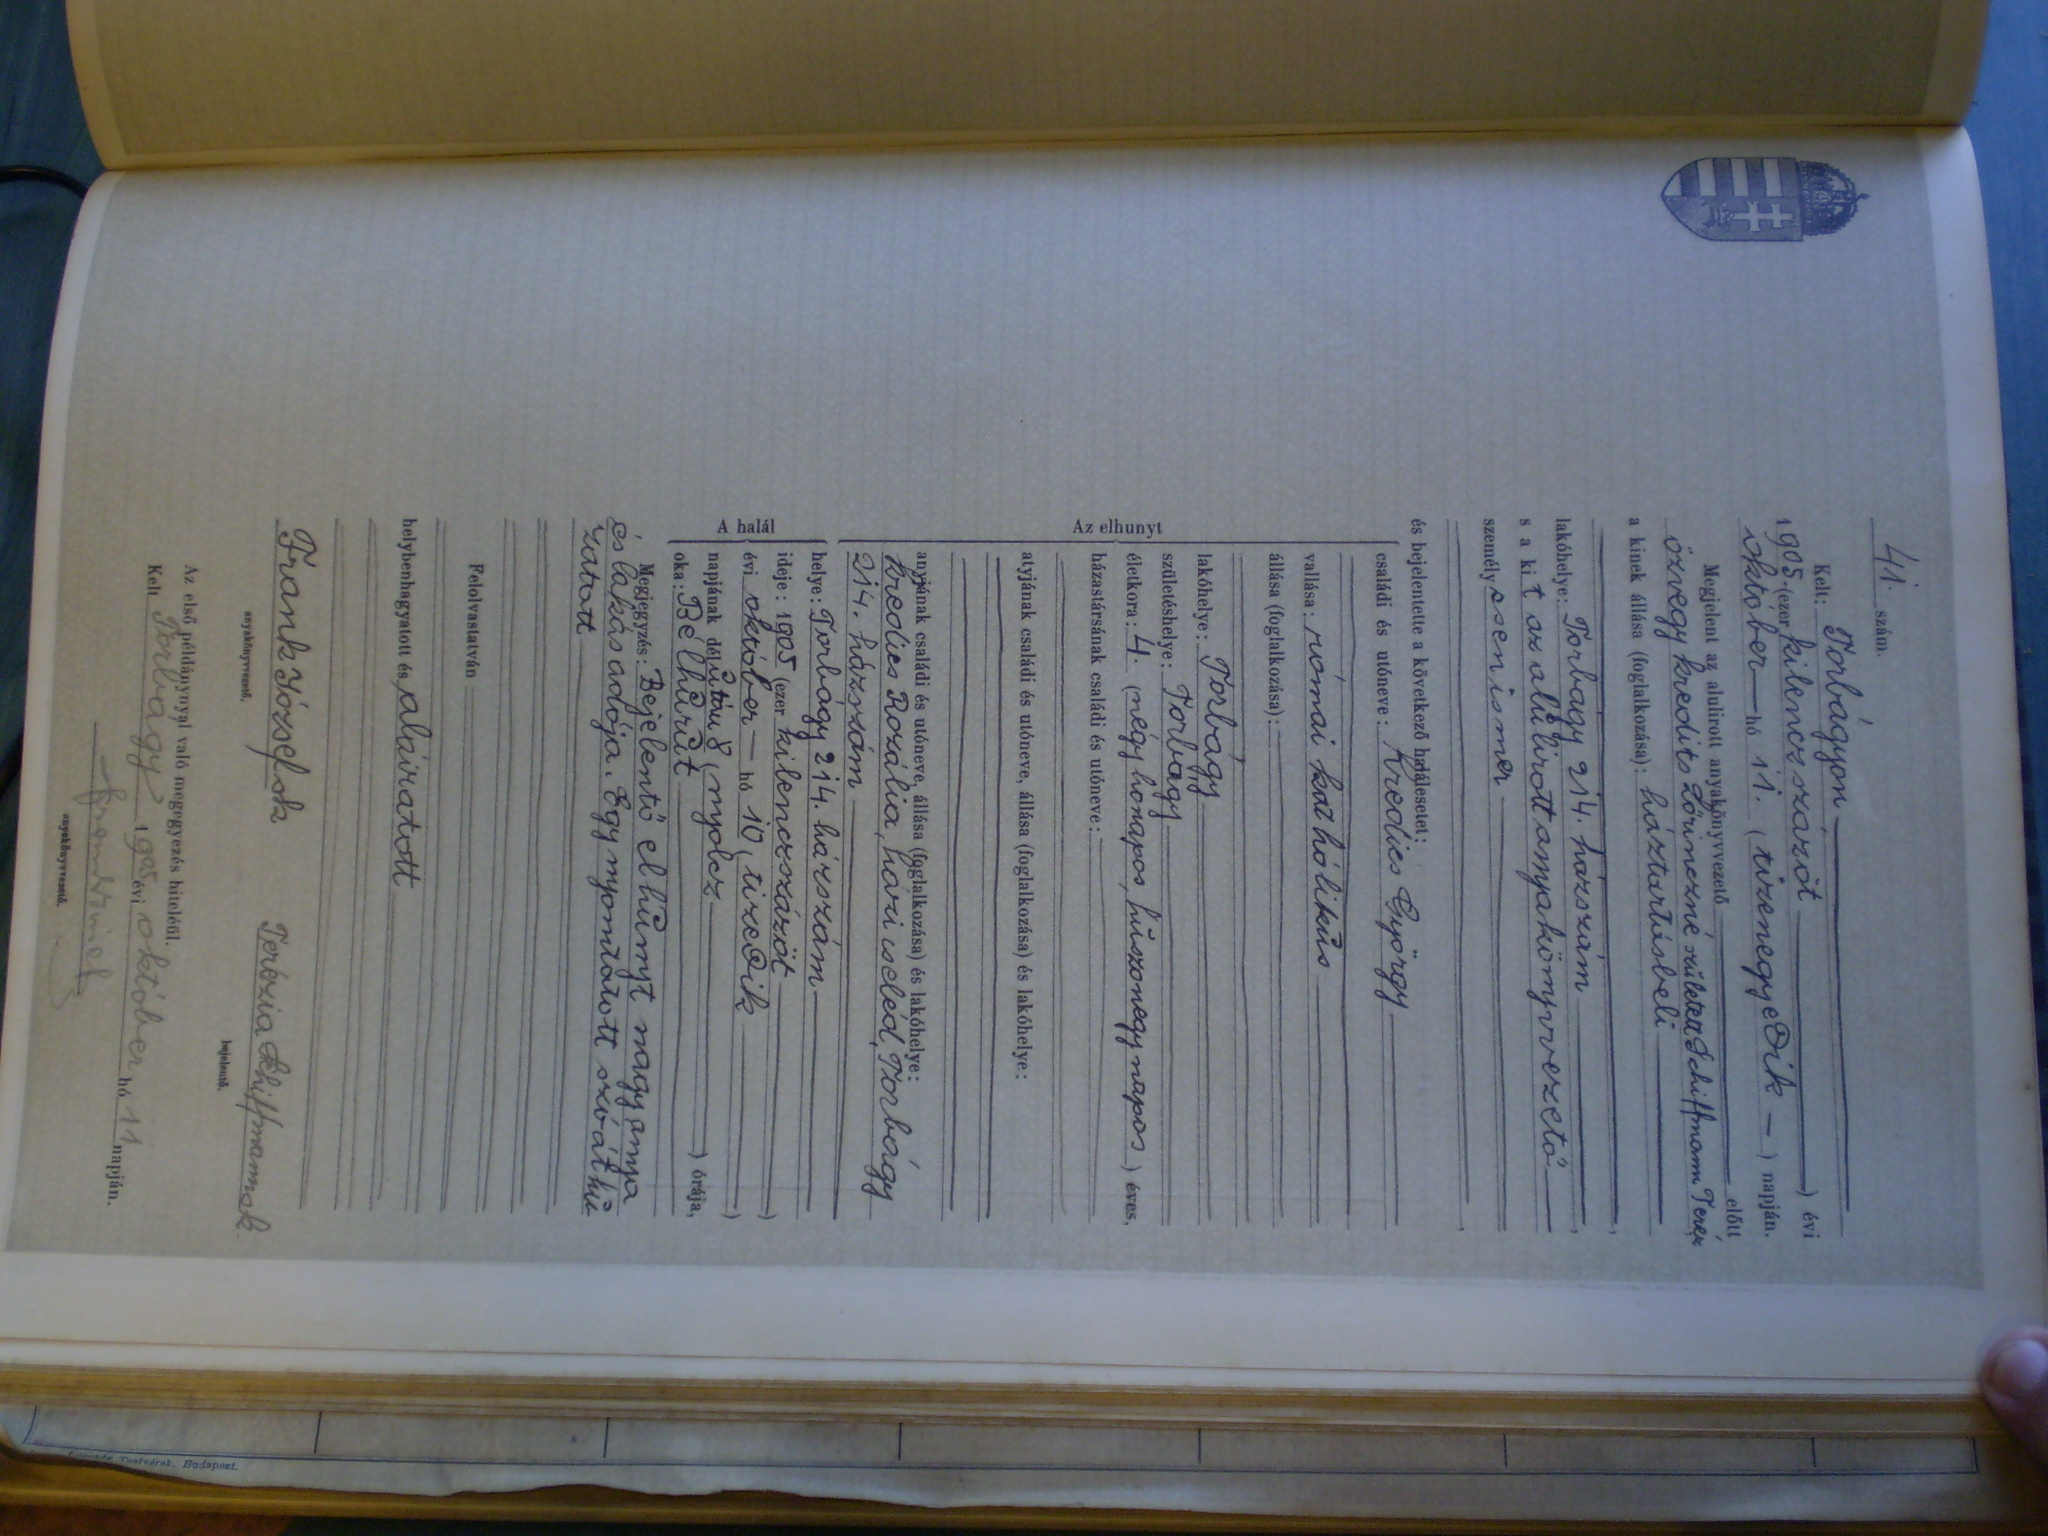 41. szám.
Kelt: Torbágyon
1905. (ezer kilenczszázöt ) évi
október hó 11. ( tizenegyedik ) napján.
Megjelent az alulirott anyakönyvvezető előtt
özvegy Kredits Lőrinczné született Schiffmann Teréz
a kinek állása (foglalkozása): háztartásbeli
lakóhelye: Torbágy 214. házszám
s a kit az alúlirott anyakönyvvezető
személyesen ismer
és bejelentette a következő halálesetet:
Az elhunyt
családi és utóneve: Kredics György
vallása: római katholikus
állása (foglalkozása):
lakóhelye: Torbágy
születéshelye: Torbágy
életkora: 4. (négy hónapos, húszonegy napos ) éves,
házastársának családi és utóneve:
atyjának családi és utóneve, állása (foglalkozása) és lakóhelye:
anyjának családi és utóneve, állása (foglalkozása) és lakóhelye:
Kredics Rozália, házi cseléd, Torbágy
214. házszám
A halál
helye: Torbágy 214. házszám
ideje: 1905 (ezer kilenczszázöt )
évi október hó 10 (tizedik )
napjának délútáni 8 (nyolcz ) órája,
oka: Bélhúrút
Megjegyzés: Bejelentő elhúnyt nagyanyja
és lakás adója. Egy nyomtatott szó áthú
zatott
Felolvastatván
helybenhagyatott és aláiratott
Frank József sk Terézia Schiffmann sk.
anyakönyvvezető. bejelentő.
Az első példánynyal való megegyezés hiteléül.
Kelt Torbágy 1905 évi október hó 11 napján.
anyakönyvvezető.
Testvérek, Budapest.